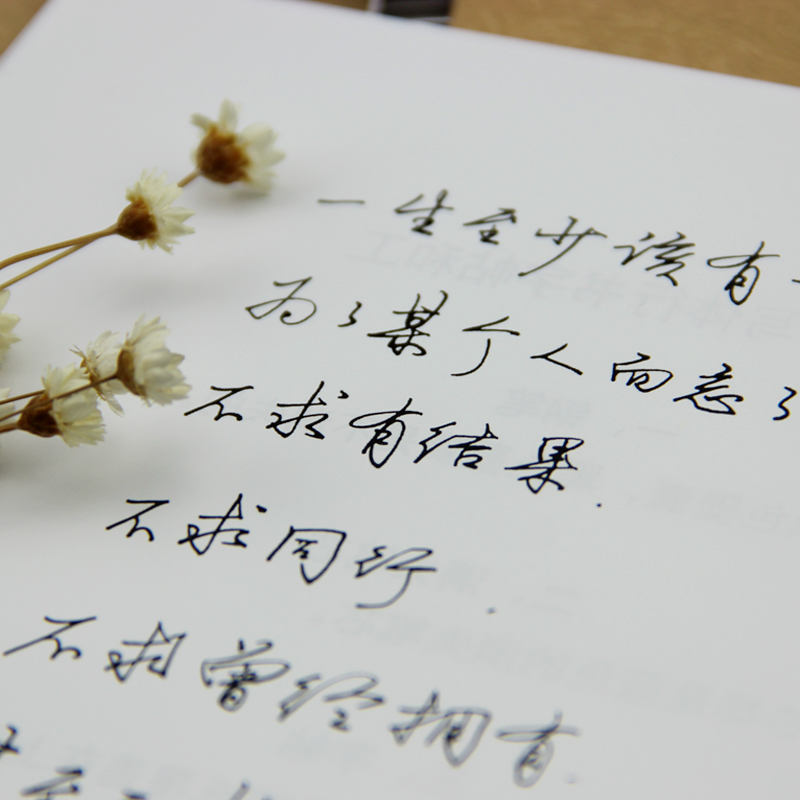 一生至少该有
为了某个人向忘了
不求有结果.
不求同行.
不求曾经拥有.